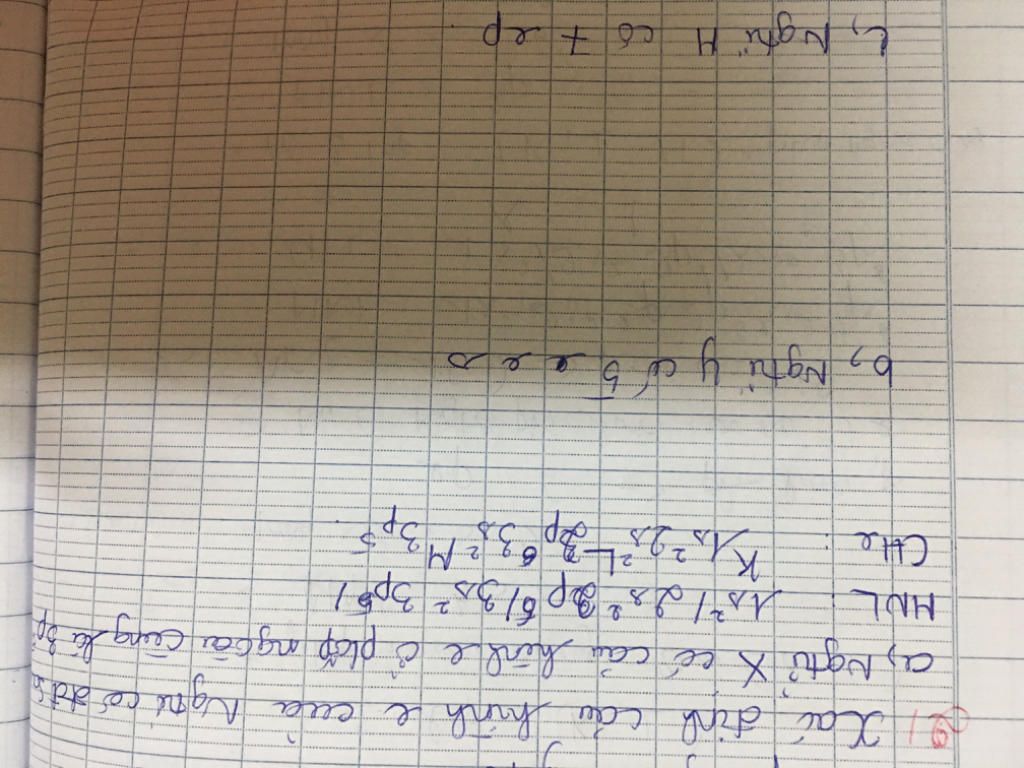 Q1 Xác định cấu hình e của Ngtử có đđ sau
a, Ngtử X có cấu hình e ở plớp ngoài cùng là 3p⁵
MNL: 1s²/ 2s² 2p⁶/ 3s² 3p⁵/
K L M
CHe: 1s² 2s² 2p⁶ 3s² 3p⁵.
b, Ngtử Y có 5 e s
c, Ngtử H có 7 ep.